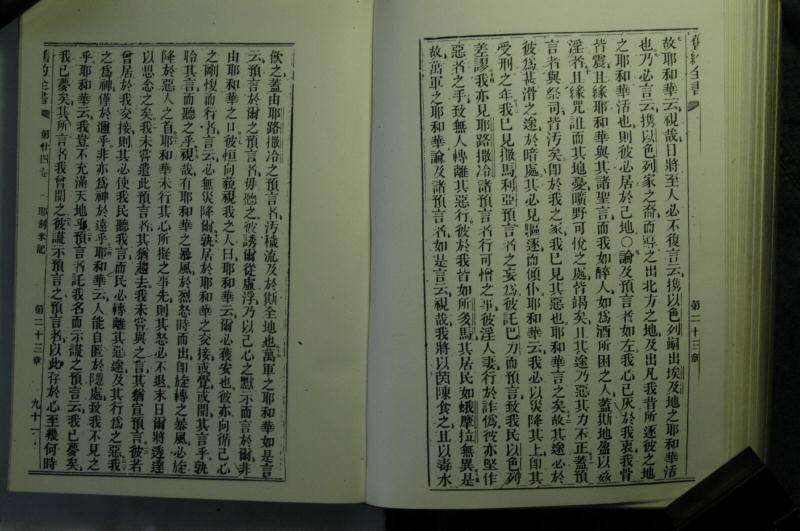 舊約全書
故耶和華云視哉日將至人必不復言云攜以色列嗣出埃及地之耶和華活
也乃必言云攜以色列家之裔而導之出北方之地及出凡我昔所逐彼之地
之耶和華活也則彼必居於己地〇論及預言者如左我心已
皆震且緣耶和華與其諸聖言而我如醉人如為酒所困之人蓋斯地盈以姦
淫者且緣咒詛而其地憂曠野可悅之處皆竭矣且其途乃惡其力不正蓋預
言者與祭司皆汚矣卽於我之家我已見其惡也耶和華言之矣故其途必於
彼為甚滑之途於暗處其必見驅逐而傾仆耶和華云我必以災降其上卽其
受刑之年我已見撒馬利亞預言者之妄為彼託巴力而預言致我民以色列
差謬我亦見耶路撒冷諸預言者行可憎之事彼淫人妻行於詐僞彼亦堅作
惡者之手致無人轉離其惡行彼於我皆如所多馬其居民如蛾摩拉無異是
故萬軍之耶和華論及諸預言者如是言云視哉我將以茵陳食之且以毒水
第二十三章
飲之蓋由耶路撒冷之預言者汚穢流及於斯全地也萬軍之耶和華如是言
云預言於爾之預言者毋聽之彼誘爾從虛浮乃以己心之默示而言於爾非
由耶和華之口彼恒向藐視我之人曰耶和華云爾必獲安也彼亦向循己心
之剛愎而行者言云必無災降爾孰居於耶和華之交接或覺或聞其言乎孰
聆其言而聽之乎視哉有耶和華之暴風於烈怒時而出卽旋轉之暴風必旋
降於惡人之首耶和華未行其心所擬之事先則其怒必不退末日爾將透達
以思念之矣我未嘗遣此預言者其猶趨去我未嘗與之言其猶宣預言彼若
曾居於我交接則其必使我民聽我言而民必轉離其惡途及其行為之惡我
之為神僅於邇乎非亦為神於遠乎耶和華云人能自匿於隱處致我不見之
乎耶和華云我豈不充滿天地乎預言者託我名而示謊之預言云我已夢矣
我已夢矣其所言者我曾聞之彼謊示預言之預言者以此存於心至幾何時
舊約全書
第廿四卷
耶利米記
第二十三章
九十一